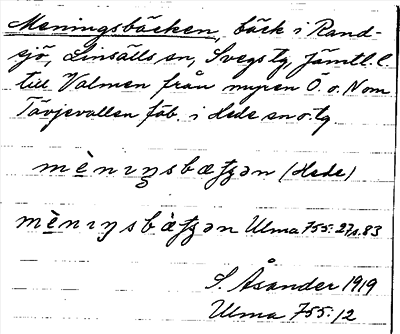 Meningsbäcken, bäck i Rand-
sjö, Linsälls sn, Svegs tg, Jämtl. l.
till Valmen från myren Ö. o. N om
Tävjevallen fäb. i Hede sn o. tg
mèniŋsbæʈʂən (Hede)
mèniŋsbæ̀ʈʂən Ulma 755:27 s. 83
S. Åsander 1919
Ulma 755:12